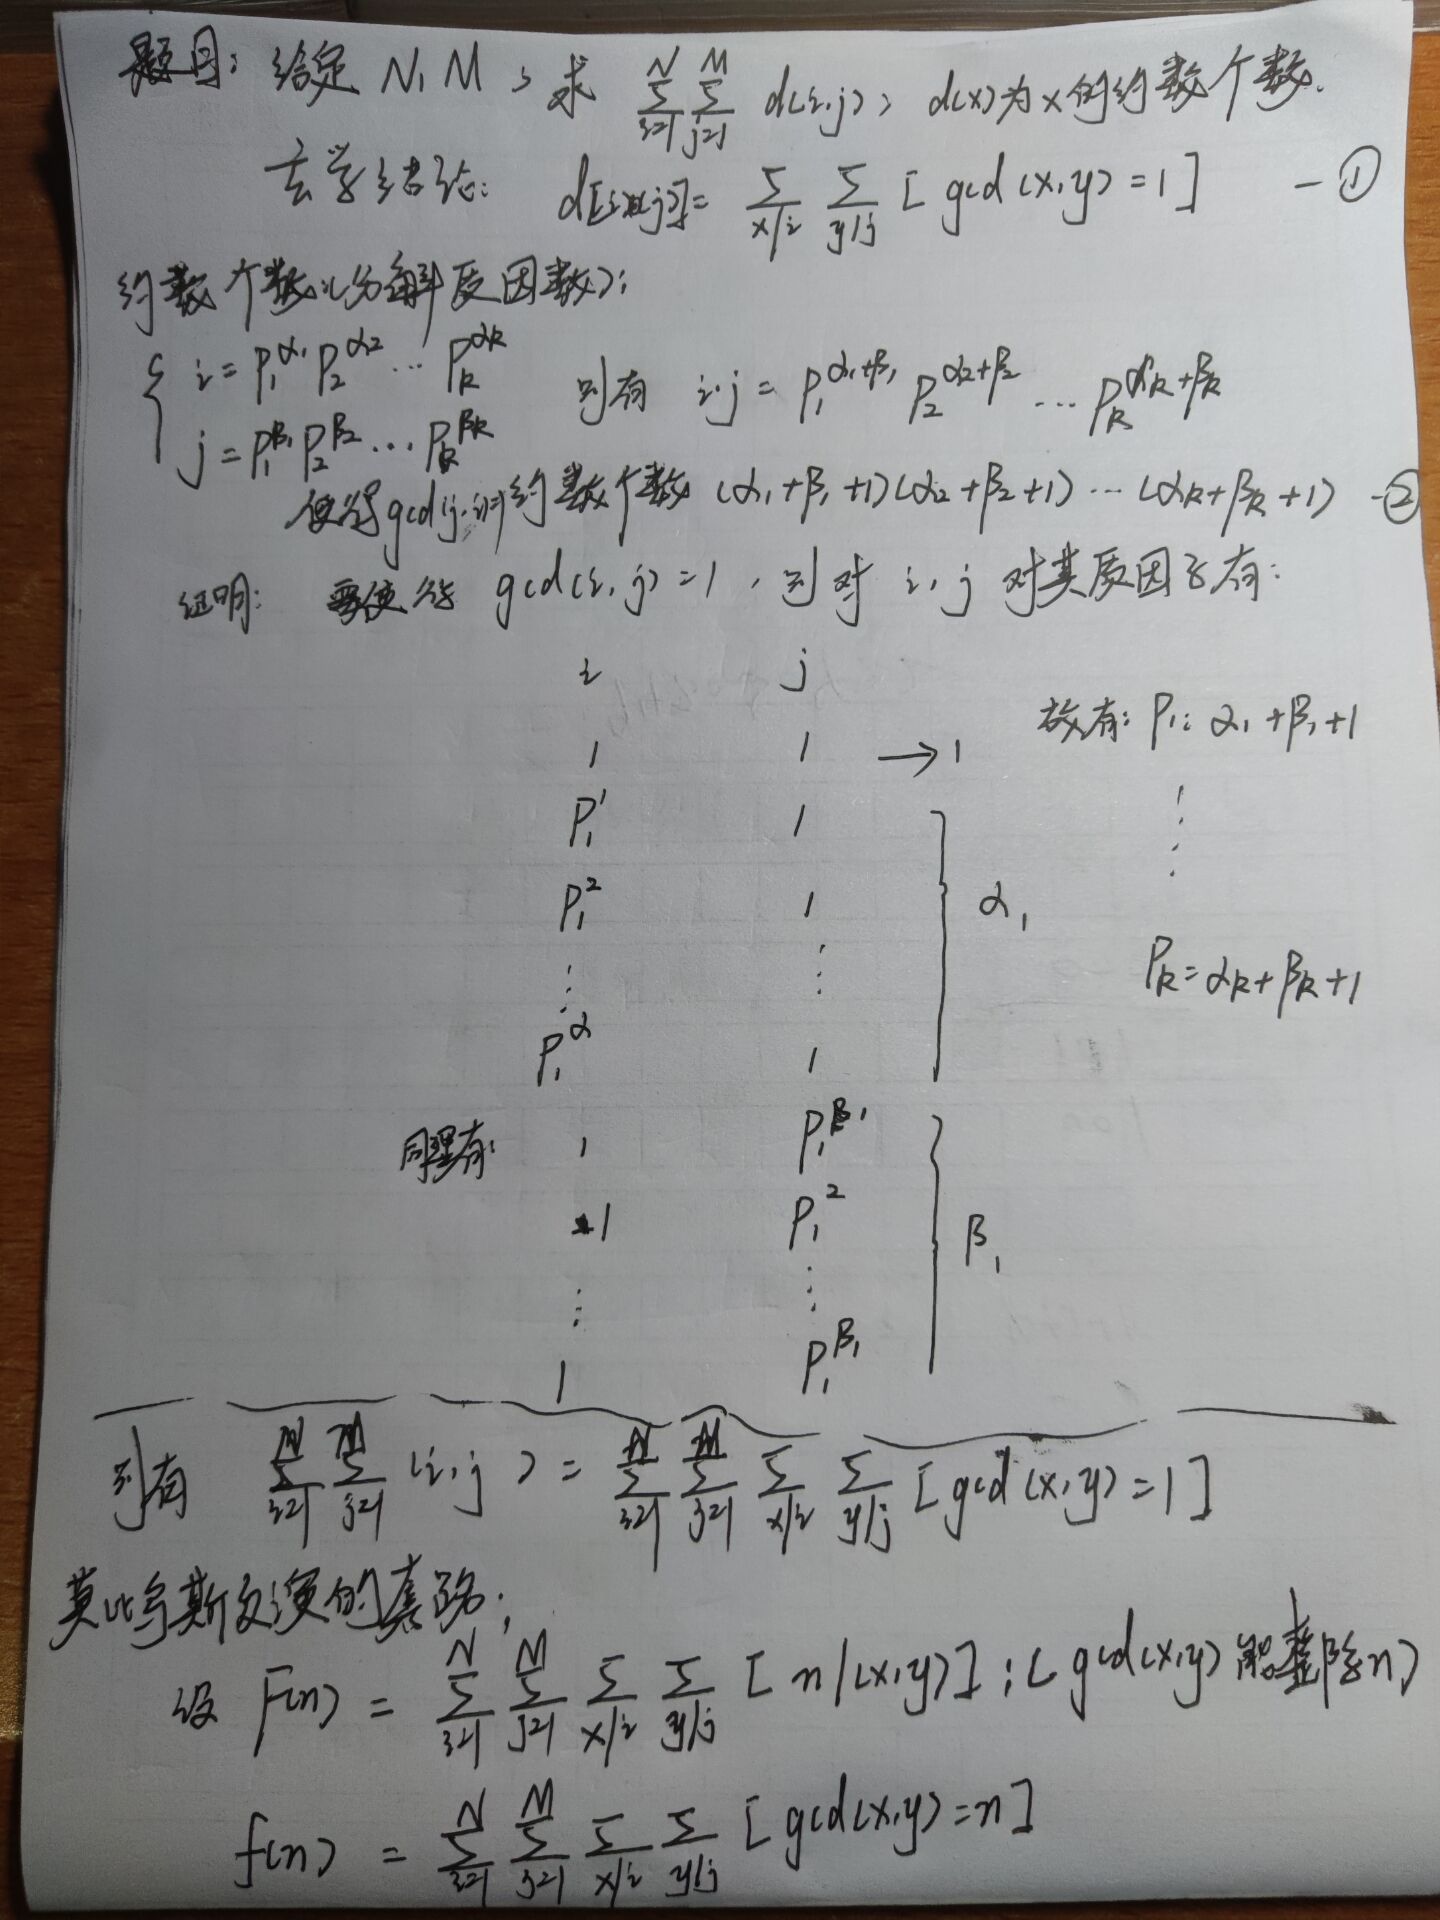 题目: 给定 N,M, 求 ∑_{i=1}^{N} ∑_{j=1}^{M} d(i,j), d(x)为x的约数个数.
玄学结论: d[i×j]= ∑_{x|i} ∑_{y|j} [gcd(x,y)=1] —①
约数个数(分解质因数):
{ i=P₁^{α₁}P₂^{α₂}…P_k^{αk}
j=P₁^{β₁}P₂^{β₂}…P_k^{βk}
则有 i·j=P₁^{α₁+β₁}P₂^{α₂+β₂}…P_k^{αk+βk}
使得gcd(j,i)的约数个数(α₁+β₁+1)(α₂+β₂+1)…(αk+βk+1) -②
证明: 要使得 gcd(i,j)=1, 则对 i,j 对其质因子有:
i j
1 1 →1
故有: P₁: α₁+β₁+1
P₁^1 1
P₁^2 1
⋮ ⋮
P₁^α 1
} α₁
⋮
P_k=αk+βk+1
同理有: 1 P₁^{β₁}
1 P₁^2
⋮ ⋮
1 P₁^{β₁}
} β₁
则有 ∑_{i=1}^{N} ∑_{j=1}^{M} (i,j)= ∑_{i=1}^{N} ∑_{j=1}^{M} ∑_{x|i} ∑_{y|j} [gcd(x,y)=1]
莫比乌斯反演的套路:
设 F(n) = ∑_{i=1}^{N} ∑_{j=1}^{M} ∑_{x|i} ∑_{y|j} [n|(x,y)]; (gcd(x,y)能整除n)
f(n) = ∑_{i=1}^{N} ∑_{j=1}^{M} ∑_{x|i} ∑_{y|j} [gcd(x,y)=n]